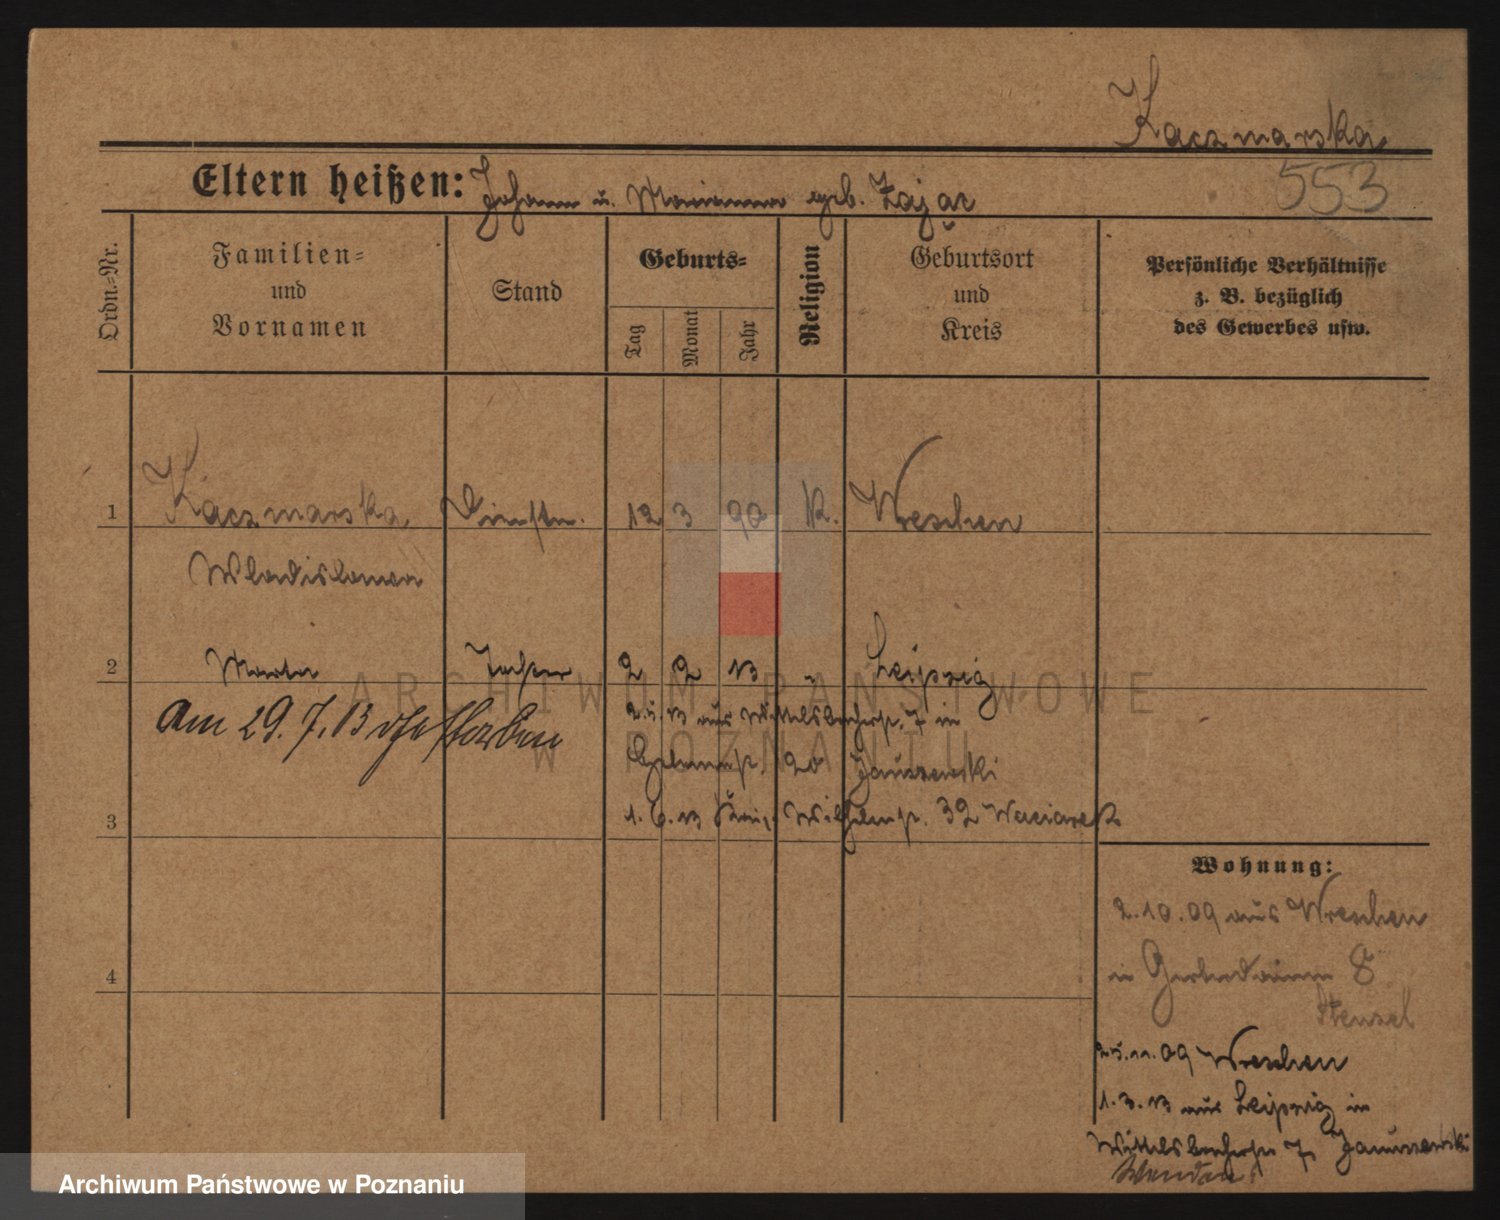 Kaczmarska
553
Eltern heißen: Johann u. Marianna geb. Zając
Ordn.-Nr.
Familien- und Vornamen
Stand
Geburts-
Tag
Monat
Jahr
Religion
Geburtsort und Kreis
Persönliche Verhältnisse z. B. bezüglich des Gewerbes usw.
1 Kaczmarska Dienstm. 12 3 90 K. Wreschen
Wladislawa
2 Marta Tochter 2 2 13 " Leipzig
Am 29. 7. 13 verstorben
2.5.13 aus Wittelsbacherstr. 7 in
20 Januszewski
3
1. 6. 13 Wilhelmstr. 32 Waciarek
Wohnung:
2.10.09 aus Wreschen
in Gerberdamm 8
Hensel
4
25.11.09 Wreschen
1.3.13 aus Leipzig in
Wittelsbacherstr 7, Januszewski
ARCHIWUM PAŃSTWOWE
W POZNANIU
Archiwum Państwowe w Poznaniu